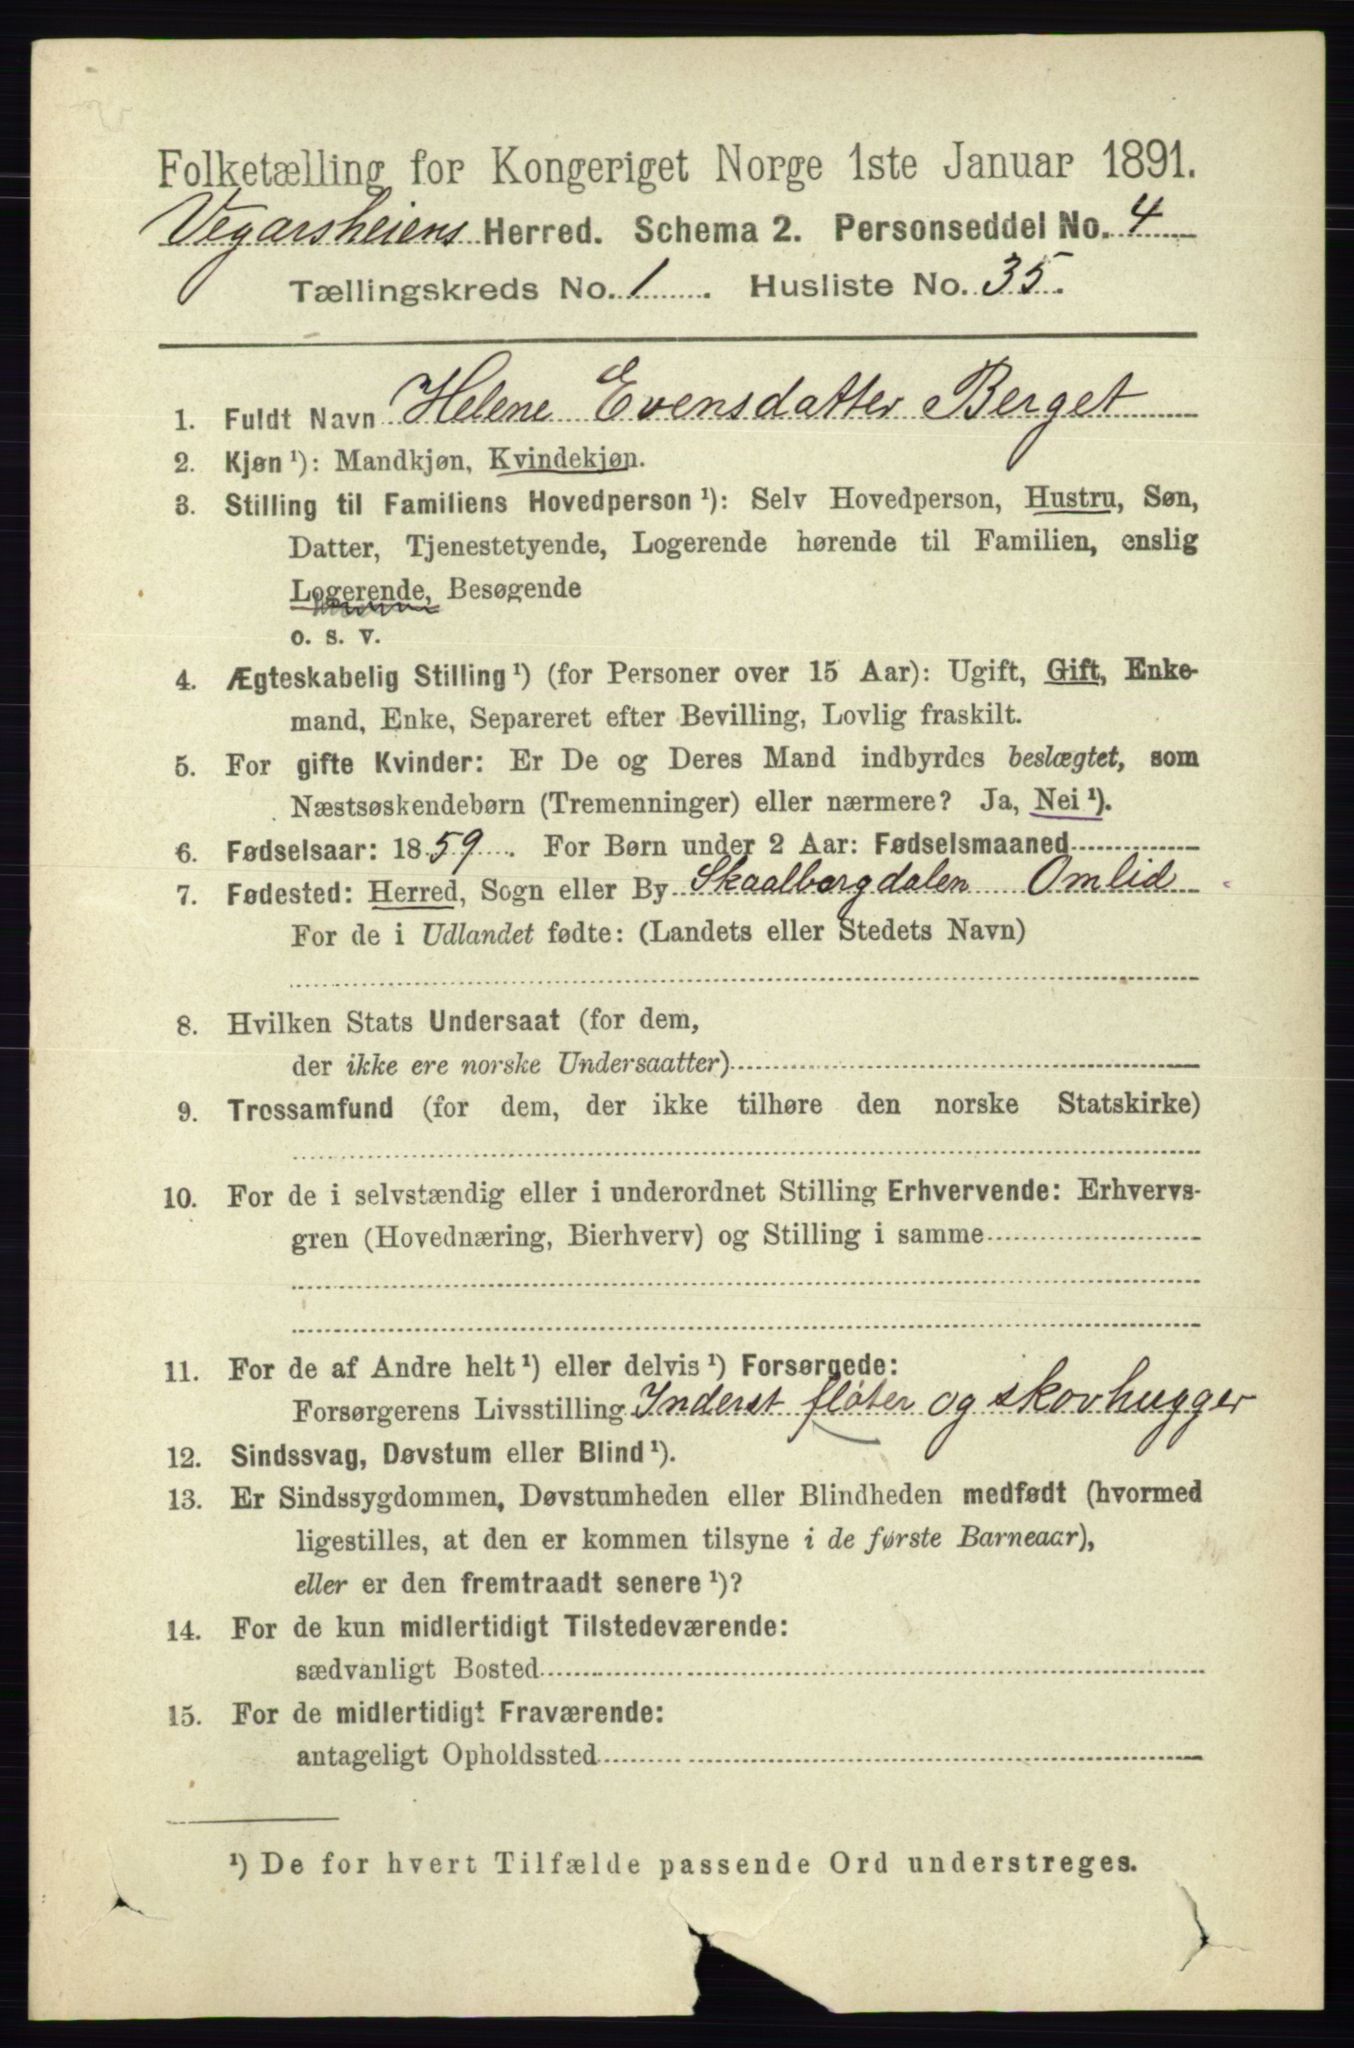 Folketælling for Kongeriget Norge 1ste Januar 1891.
Vegarsheiens Herred. Schema 2. Personseddel No. 4
Tællingskreds No. 1. Husliste No. 35.
1. Fuldt Navn Helene Evensdatter Berget
2. Kjøn ¹): Mandkjøn, Kvindekjøn.
3. Stilling til Familiens Hovedperson ¹): Selv Hovedperson, Hustru, Søn,
Datter, Tjenestetyende, Logerende hørende til Familien, enslig
Logerende, Besøgende
o. s. v.
4. Ægteskabelig Stilling ¹) (for Personer over 15 Aar): Ugift, Gift, Enke-
mand, Enke, Separeret efter Bevilling, Lovlig fraskilt.
5. For gifte Kvinder: Er De og Deres Mand indbyrdes beslægtet, som
Næstsøskendebørn (Tremenninger) eller nærmere? Ja, Nei ¹).
6. Fødselsaar: 1859. For Børn under 2 Aar: Fødselsmaaned
7. Fødested: Herred, Sogn eller By Skaalbergdalen Omlid
For de i Udlandet fødte: (Landets eller Stedets Navn)
8. Hvilken Stats Undersaat (for dem,
der ikke ere norske Undersaatter)
9. Trossamfund (for dem, der ikke tilhøre den norske Statskirke)
10. For de i selvstændig eller i underordnet Stilling Erhvervende: Erhvervs-
gren (Hovednæring, Bierhverv) og Stilling i samme
11. For de af Andre helt ¹) eller delvis ¹) Forsørgede:
Forsørgerens Livsstilling Inderst fløter og skovhugger
12. Sindssvag, Døvstum eller Blind ¹).
13. Er Sindssygdommen, Døvstumheden eller Blindheden medfødt (hvormed
ligestilles, at den er kommen tilsyne i de første Barneaar),
eller er den fremtraadt senere ¹)?
14. For de kun midlertidigt Tilstedeværende:
sædvanligt Bosted
15. For de midlertidigt Fraværende:
antageligt Opholdssted
¹) De for hvert Tilfælde passende Ord understreges.